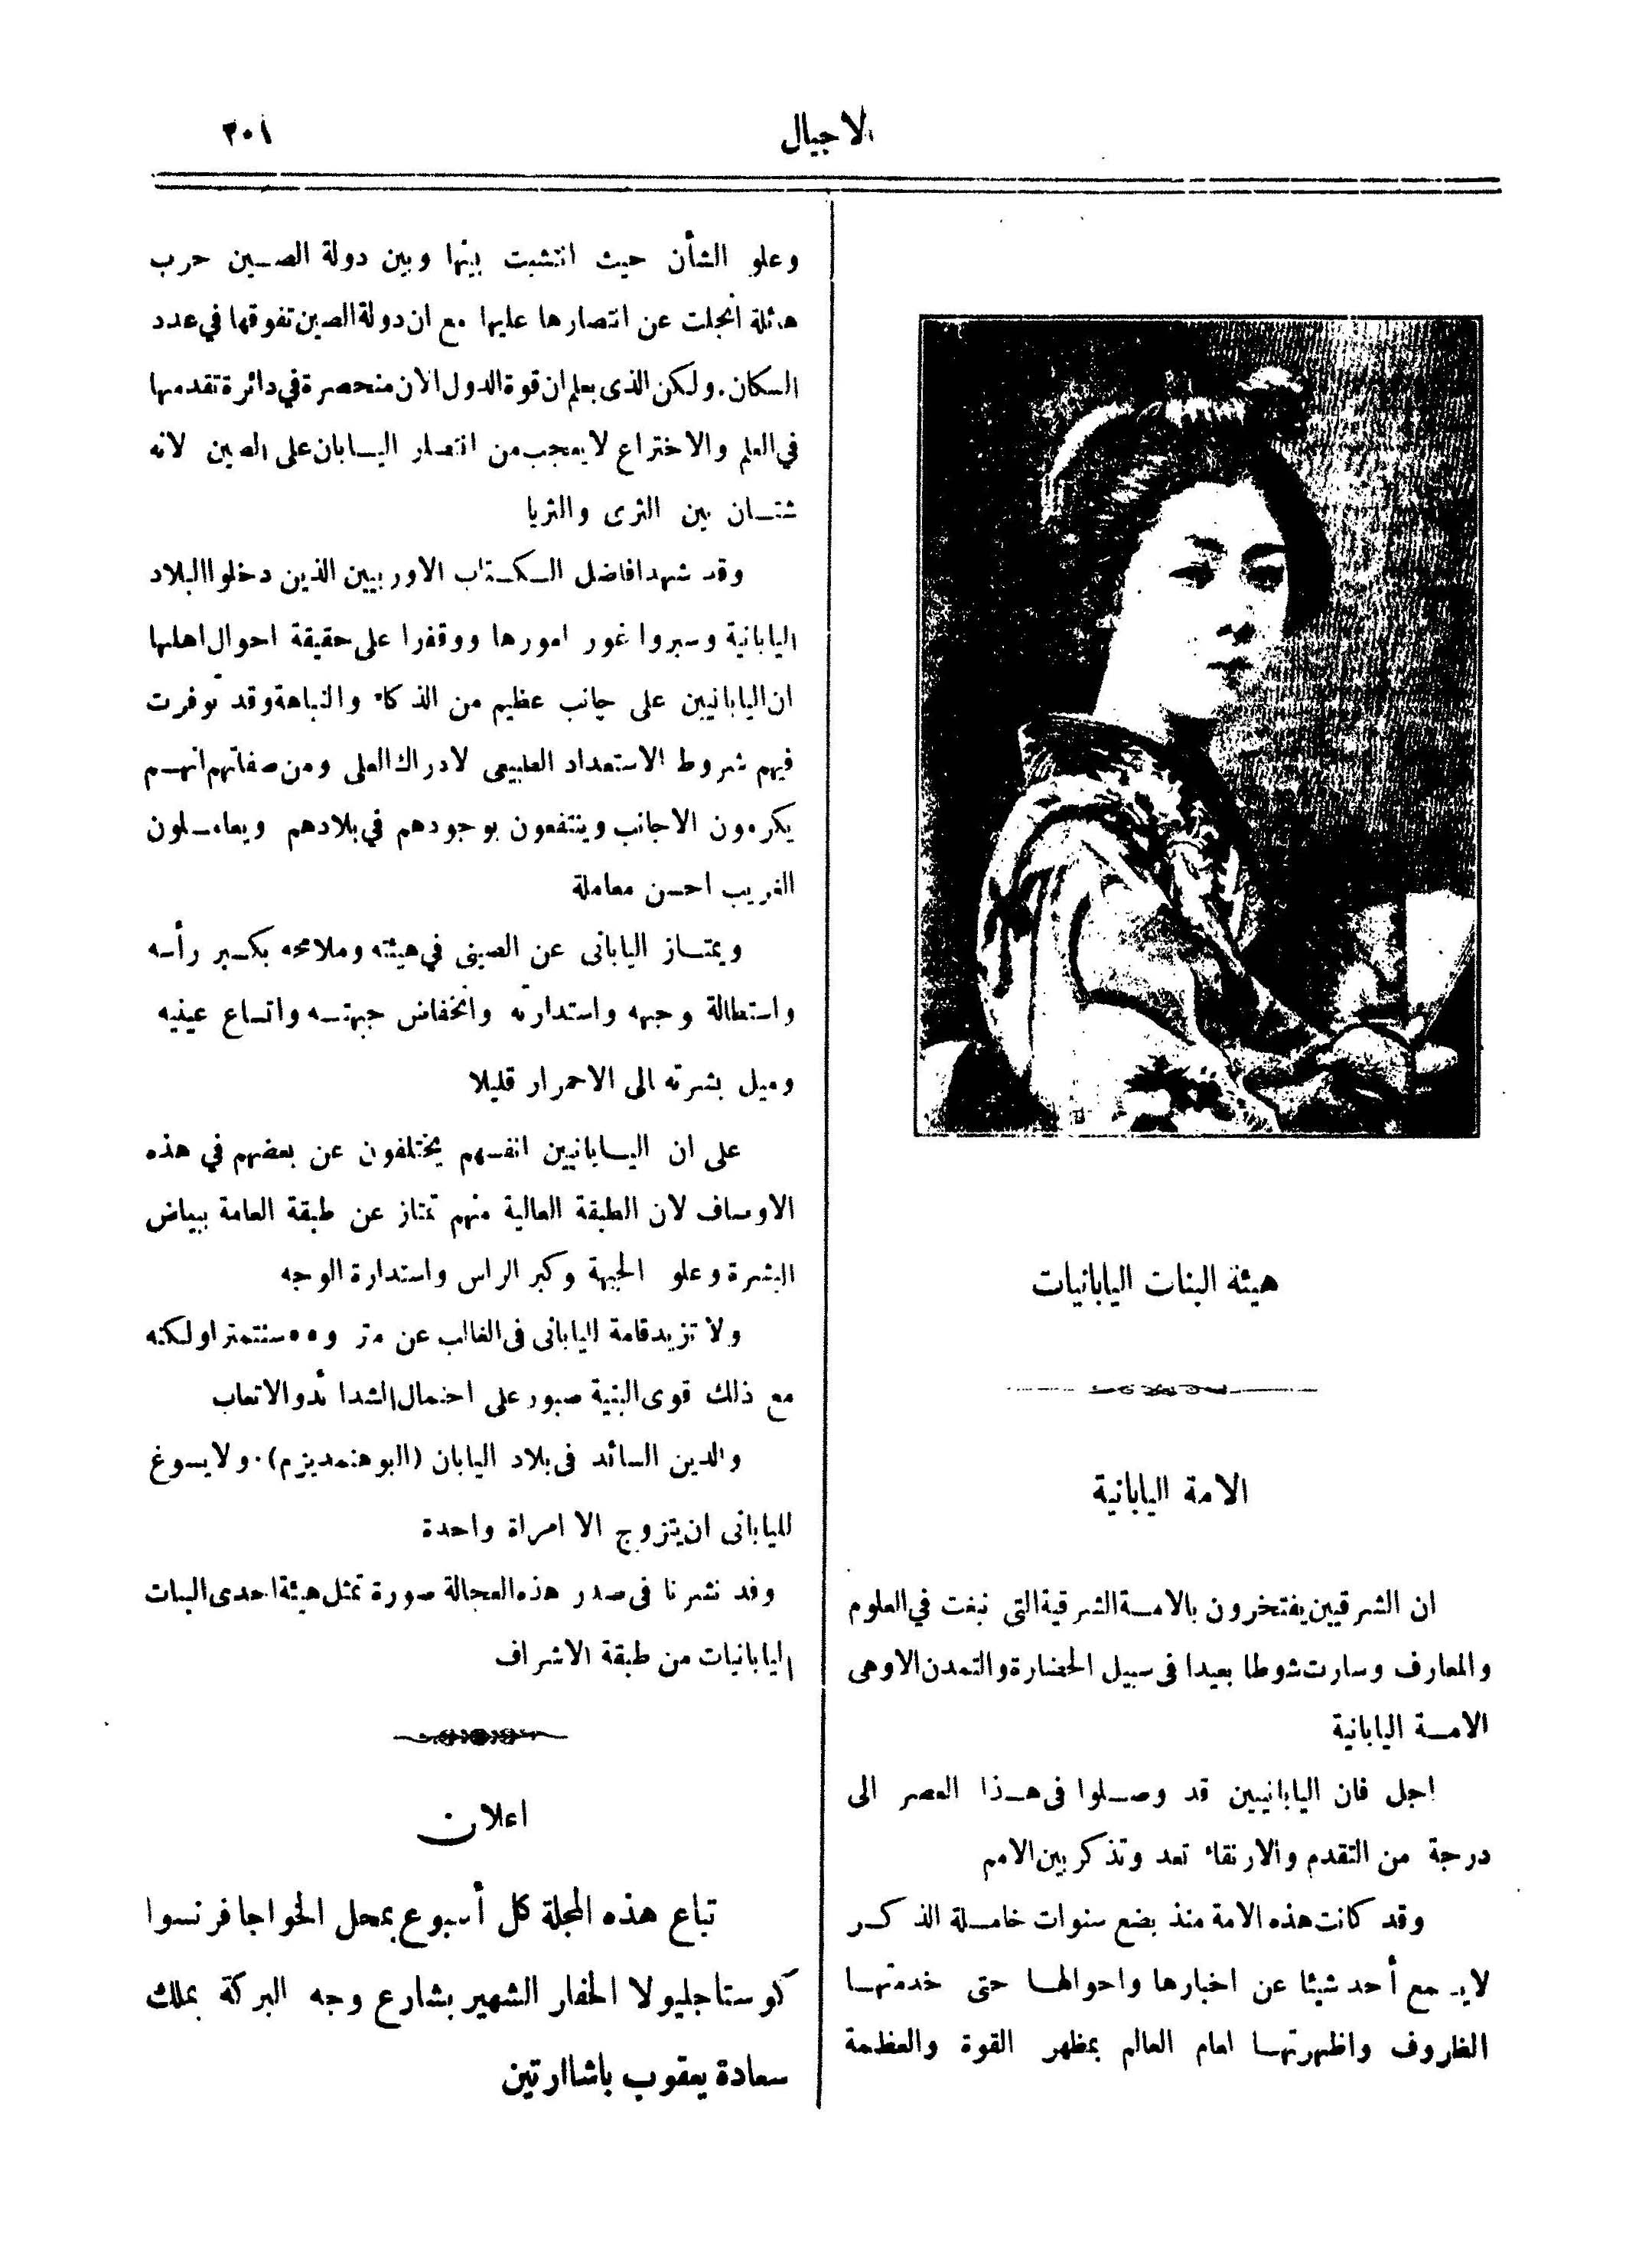 الاجيال
٣٠١
هيئة البنات اليابانيات
الامة اليابانية
ان الشرقيين يفتخرون بالامة الشرقية التى نبغت في العلوم
والمعارف وسارت شوطا بعيدا فى سبيل الحضارة والتمدن الاوهى
الامة اليابانية
اجل فان اليابانيين قد وصلوا فى هذا العصر الى
درجة من التقدم والارتقاء تعد وتذكر بين الامم
وقد كانت هذه الامة منذ بضع سنوات خاملة الذكر
لايسمع أحد شيئا عن اخبارها واحوالها حتى خدمتها
الظروف واظهرتها امام العالم بمظهر القوة والعظمة
وعلو الشأن حيث انتشبت بينها وبين دولة الصين حرب
هائلة انجلت عن انتصارها عليها مع ان دولة الصين تفوقها في عدد
السكان. ولكن الذى يعلم ان قوة الدول الان منحصرة في دائرة تقدمها
في العلم والاختراع لايعجب من انتصار اليابان على الصين لانه
شتان بين الثرى والثريا
وقد شهد افاضل الكتاب الاوربيين الذين دخلوا البلاد
اليابانية وسبروا غور امورها ووقفوا على حقيقة احوال اهلها
ان اليابانيين على جانب عظيم من الذكاء والنباهة وقد توفرت
فيهم شروط الاستعداد الطبيعى لادراك العلى ومن صفاتهم انهم
يكرمون الاجانب وينتفعون بوجودهم في بلادهم ويعاملون
الغريب احسن معاملة
ويمتاز اليابانى عن الصينى في هيئته وملامحه بكبر رأسه
واستطالة وجهه واستدارته وانخفاض جبهته واتساع عينيه
وميل بشرته الى الاحمرار قليلا
على ان اليابانيين انفسهم يختلفون عن بعضهم في هذه
الاوصاف لان الطبقة العالية منهم تمتاز عن طبقة العامة ببياض
البشرة وعلو الجبهة وكبر الراس واستدارة الوجه
ولا تزيد قامة اليابانى فى الغالب عن متر و٥٥ سنتمترا ولكنه
مع ذلك قوى البنية صبور على احتمال الشدائد والاتعاب
والدين السائد فى بلاد اليابان (البوهنمديزم). ولا يسوغ
لليابانى ان يتزوج الا امراة واحدة
وقد نشرنا فى صدر هذه العجالة صورة تمثل هيئة احدى البنات
اليابانيات من طبقة الاشراف
اعلان
تباع هذه المجلة كل أسبوع بمحل الخواجا فرنسوا
كوستاجليولا الحفار الشهير بشارع وجه البركة بملك
سعادة يعقوب باشا ارتين